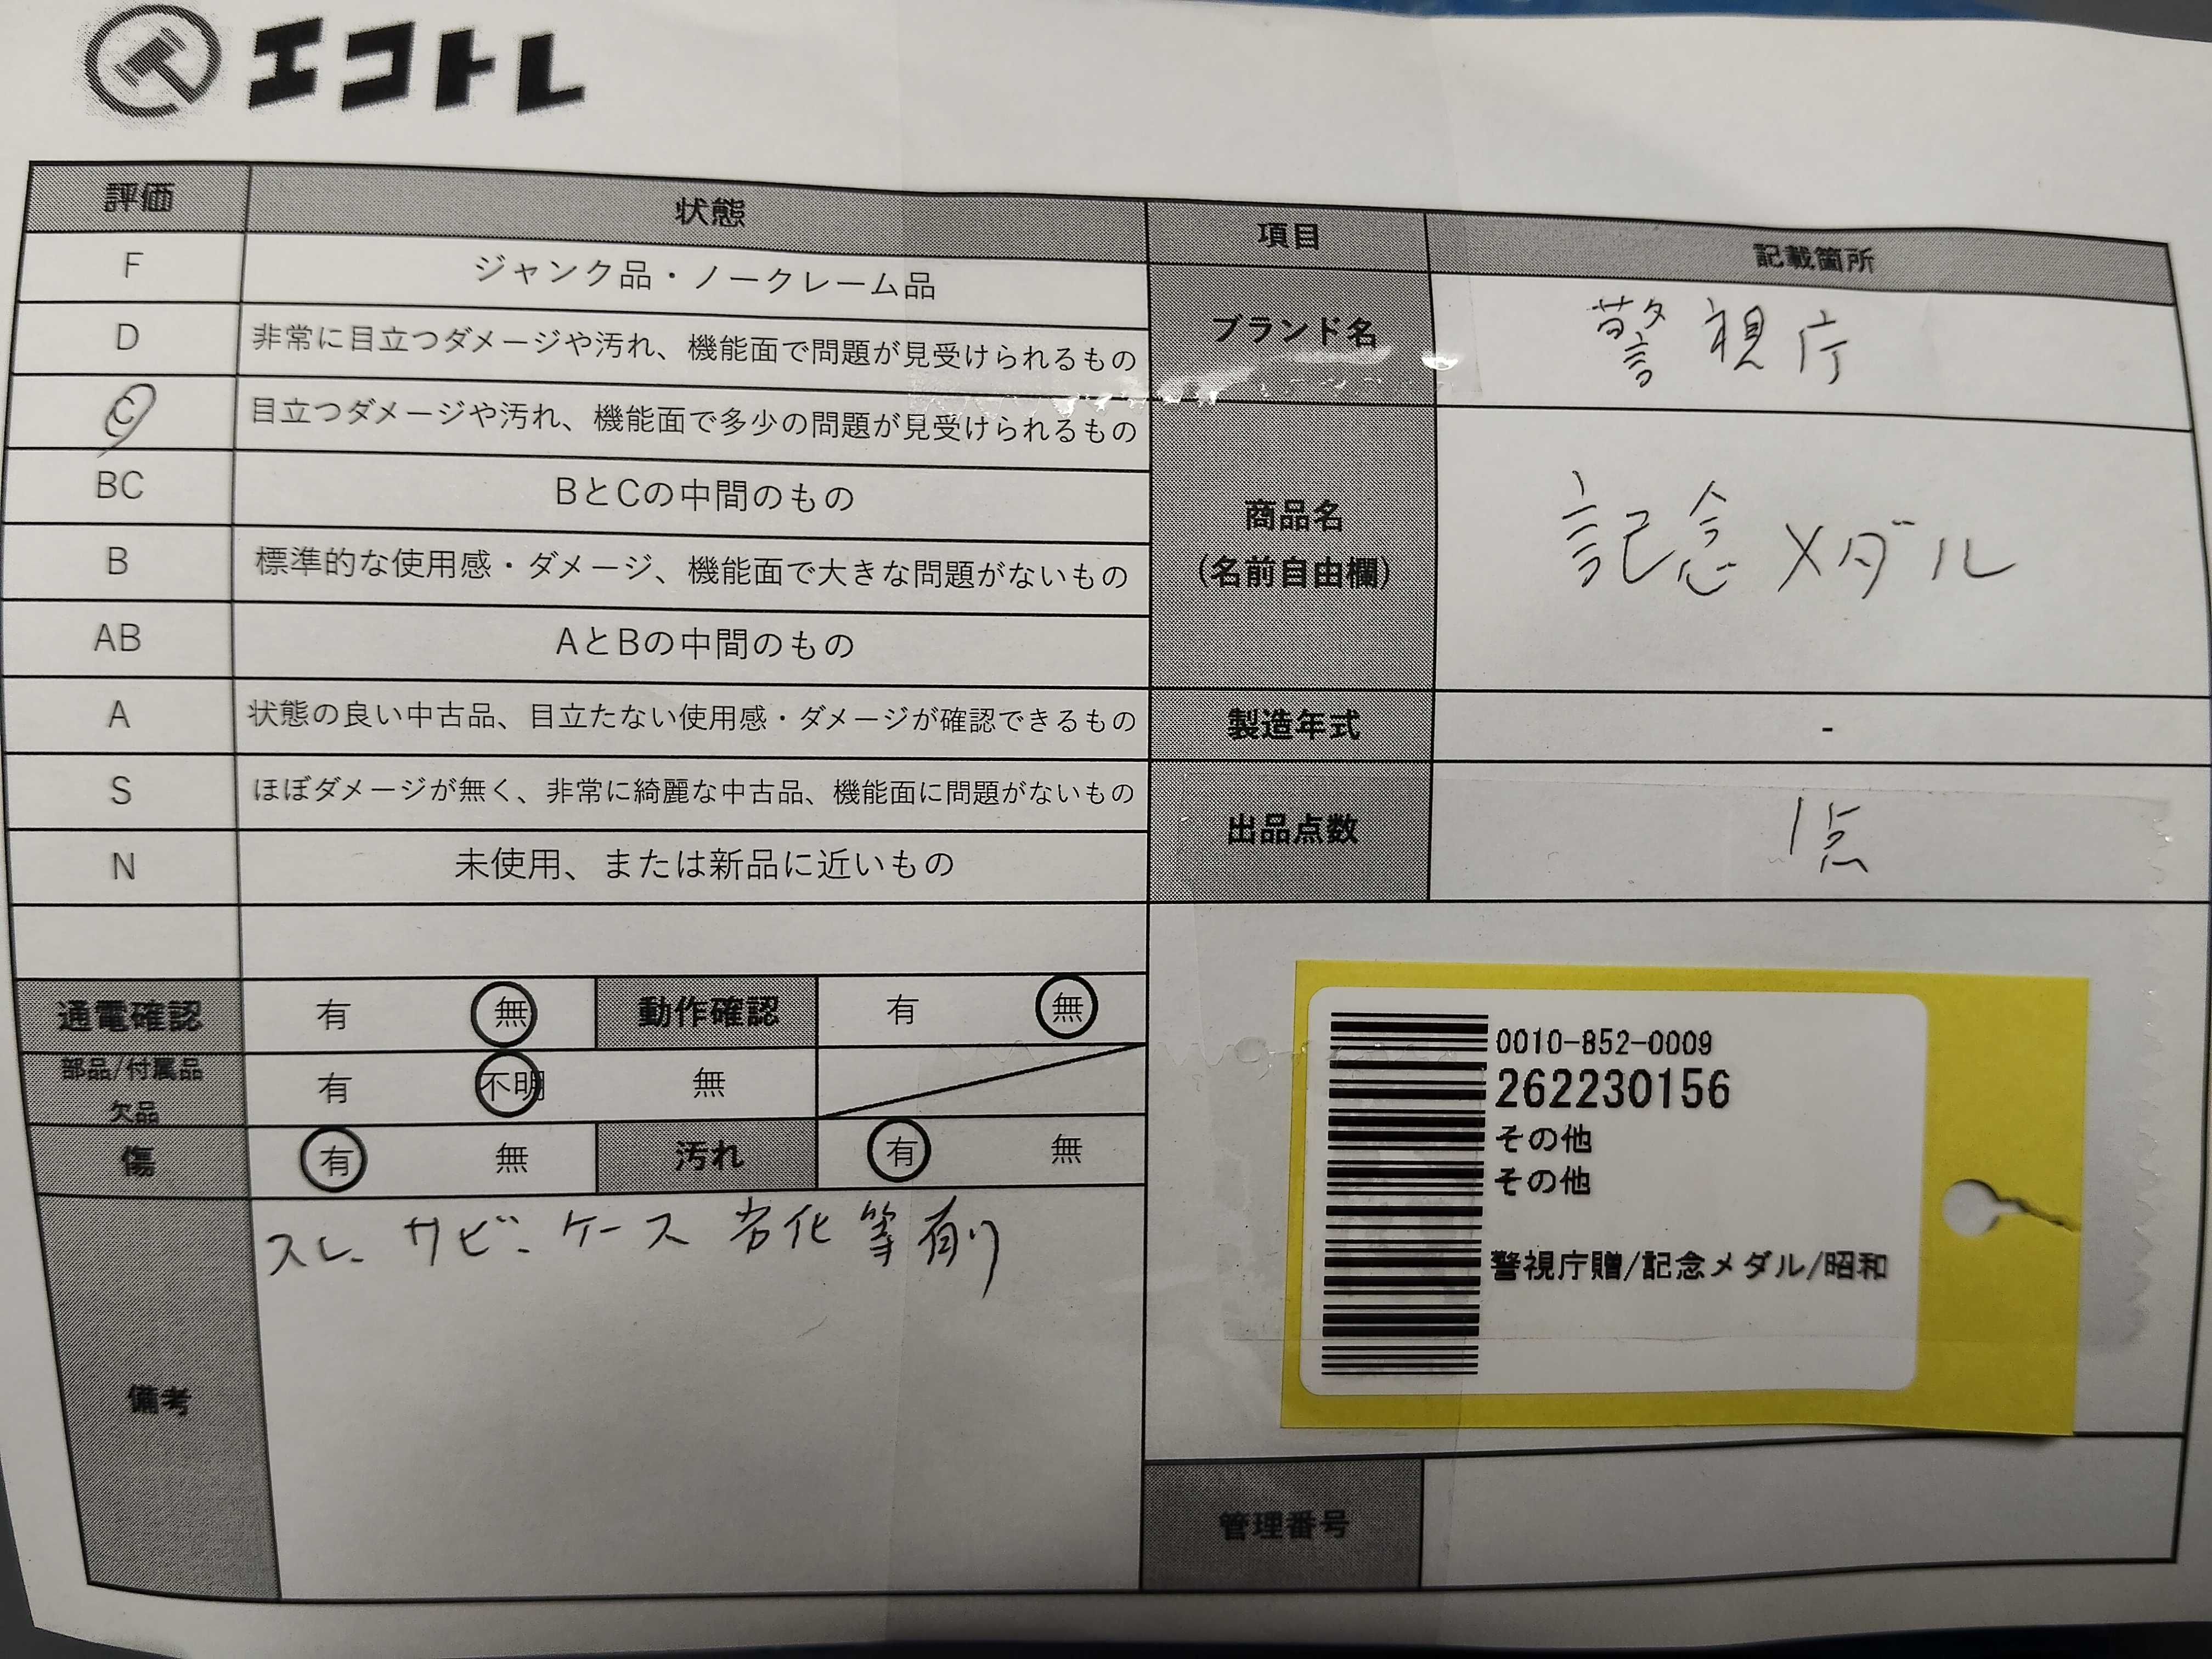 エコトレ
評価 状態
F ジャンク品・ノークレーム品
D 非常に目立つダメージや汚れ、機能面で問題が見受けられるもの
C 目立つダメージや汚れ、機能面で多少の問題が見受けられるもの
BC BとCの中間のもの
B 標準的な使用感・ダメージ、機能面で大きな問題がないもの
AB AとBの中間のもの
A 状態の良い中古品、目立たない使用感・ダメージが確認できるもの
S ほぼダメージが無く、非常に綺麗な中古品、機能面に問題がないもの
N 未使用、または新品に近いもの
通電確認 有 無 動作確認 有 無
部品/付属品
欠品 有 不明 無
傷 有 無 汚れ 有 無
備考 スレ、サビ、ケース劣化等有り
項目 記載箇所
ブランド名 警視庁
商品名
(名前自由欄) 記念メダル
製造年式 -
出品点数 1点
0010-852-0009
262230156
その他
その他
警視庁贈/記念メダル/昭和
管理番号